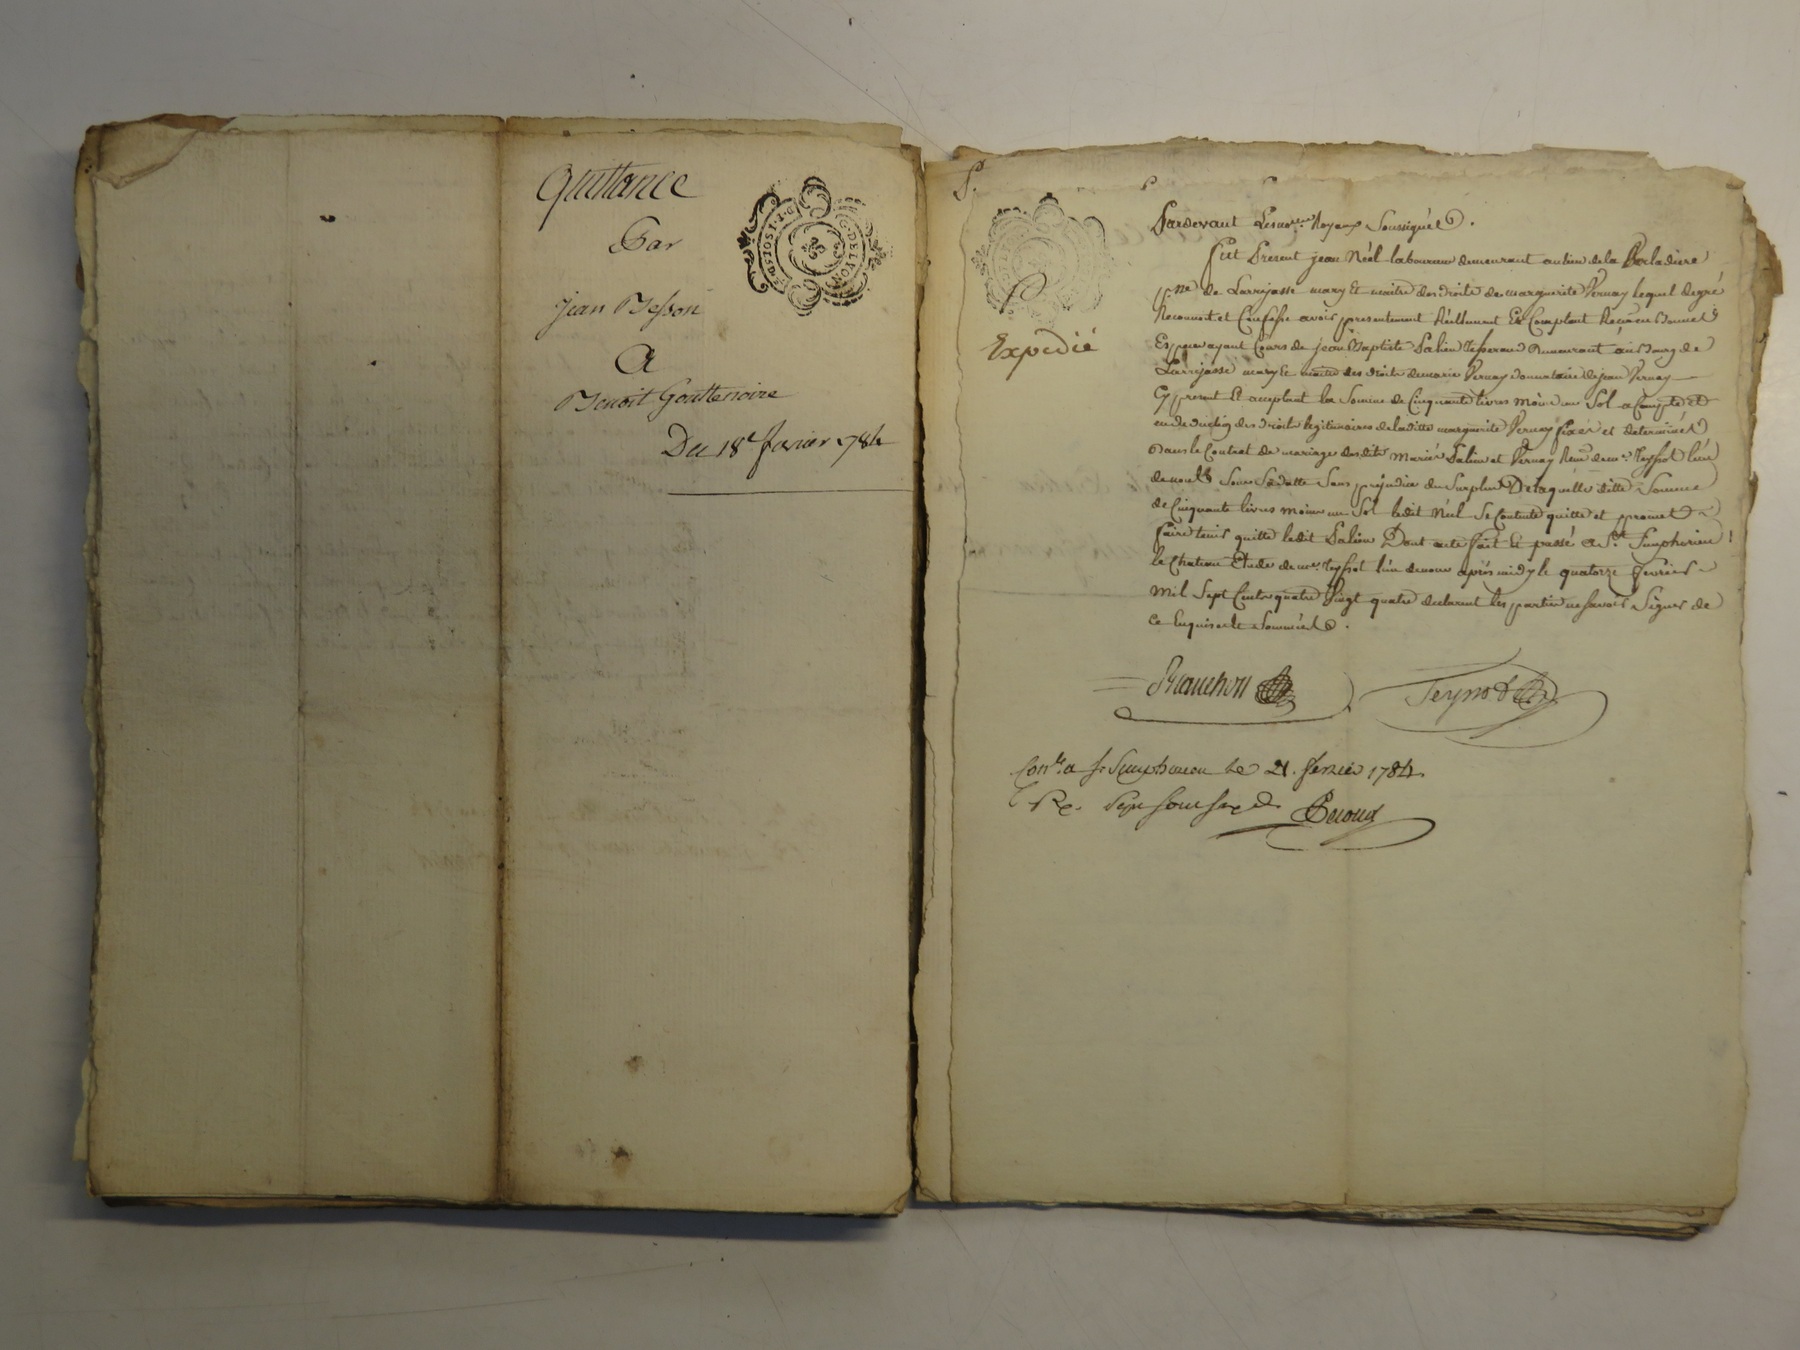 Quittance
Par
Jean Besson
A
Benoit Gouttenoire
Du 18e fevrier 1784
G. DE LYON
Expedié
Pardevant Les nores Royaux Soussignés.
fut Present jean Néel laboureur demeurant au lieu de la Borladiere
psse de Larrajasse mary Et maitre des droits de marguerite Vernay lequel de gré
Reconnoit et Confesse avoir presentement Réellement Et Comptant Reçu en Bonnes
Espèces ayant Cours de jean Baptiste Salien tisserand demeurant au Bourg de
Larrajasse mary Et maitre des droits de marie Vernay donnataire de jean Vernay
Cy present Et acceptant la Somme de Cinquante livres moins un Sol a Compte et
en deduction des droits legitimaires de laditte marguerite Vernay fixés et determinés
dans le Contrat de mariage desdits mariés Salien et Vernay Reçu de me Teyssot l'un
de nous Sous Sa datte Sans préjudice du Surplus De laquelle ditte Somme
de Cinquante livres moins un Sol ledit Néel Se Contente quitte et promet
faire tenir quitte ledit Salien Dont acte fait Et passé a St. Simphorien
le Chateau Etude de me Teyssot l'un de nous après midy le quatorze fevrier
mil Sept Cents quatre Vingt quatre declarent les parties ne savoir Signer de
ce Enquis et Sommés.
Contlé a St Simphorien le 21. fevrier 1784
Re. Sept sous Six d.